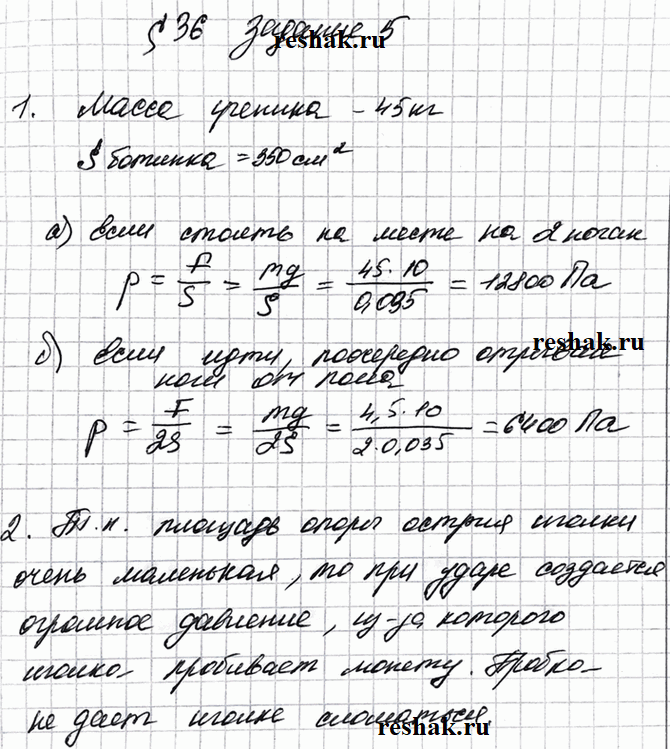 § 36 Задание 5
reshak.ru
1. Масса ученика – 45кг
S ботинка = 350 см²
а) если стоять на месте на 2 ногах
p = F/S = mg/S = 45·10/0,035 = 12800 Па
reshak.ru
б) если идти, поочередно отрывая
ноги от пола
p = F/2S = mg/2S = 4,5·10/2·0,035 = 6400 Па
2. Т.к. площадь опоры острия иголки
очень маленькая, то при ударе создается
огромное давление, из-за которого
иголка пробивает монету. Пробка
не дает иголке сломаться.
reshak.ru